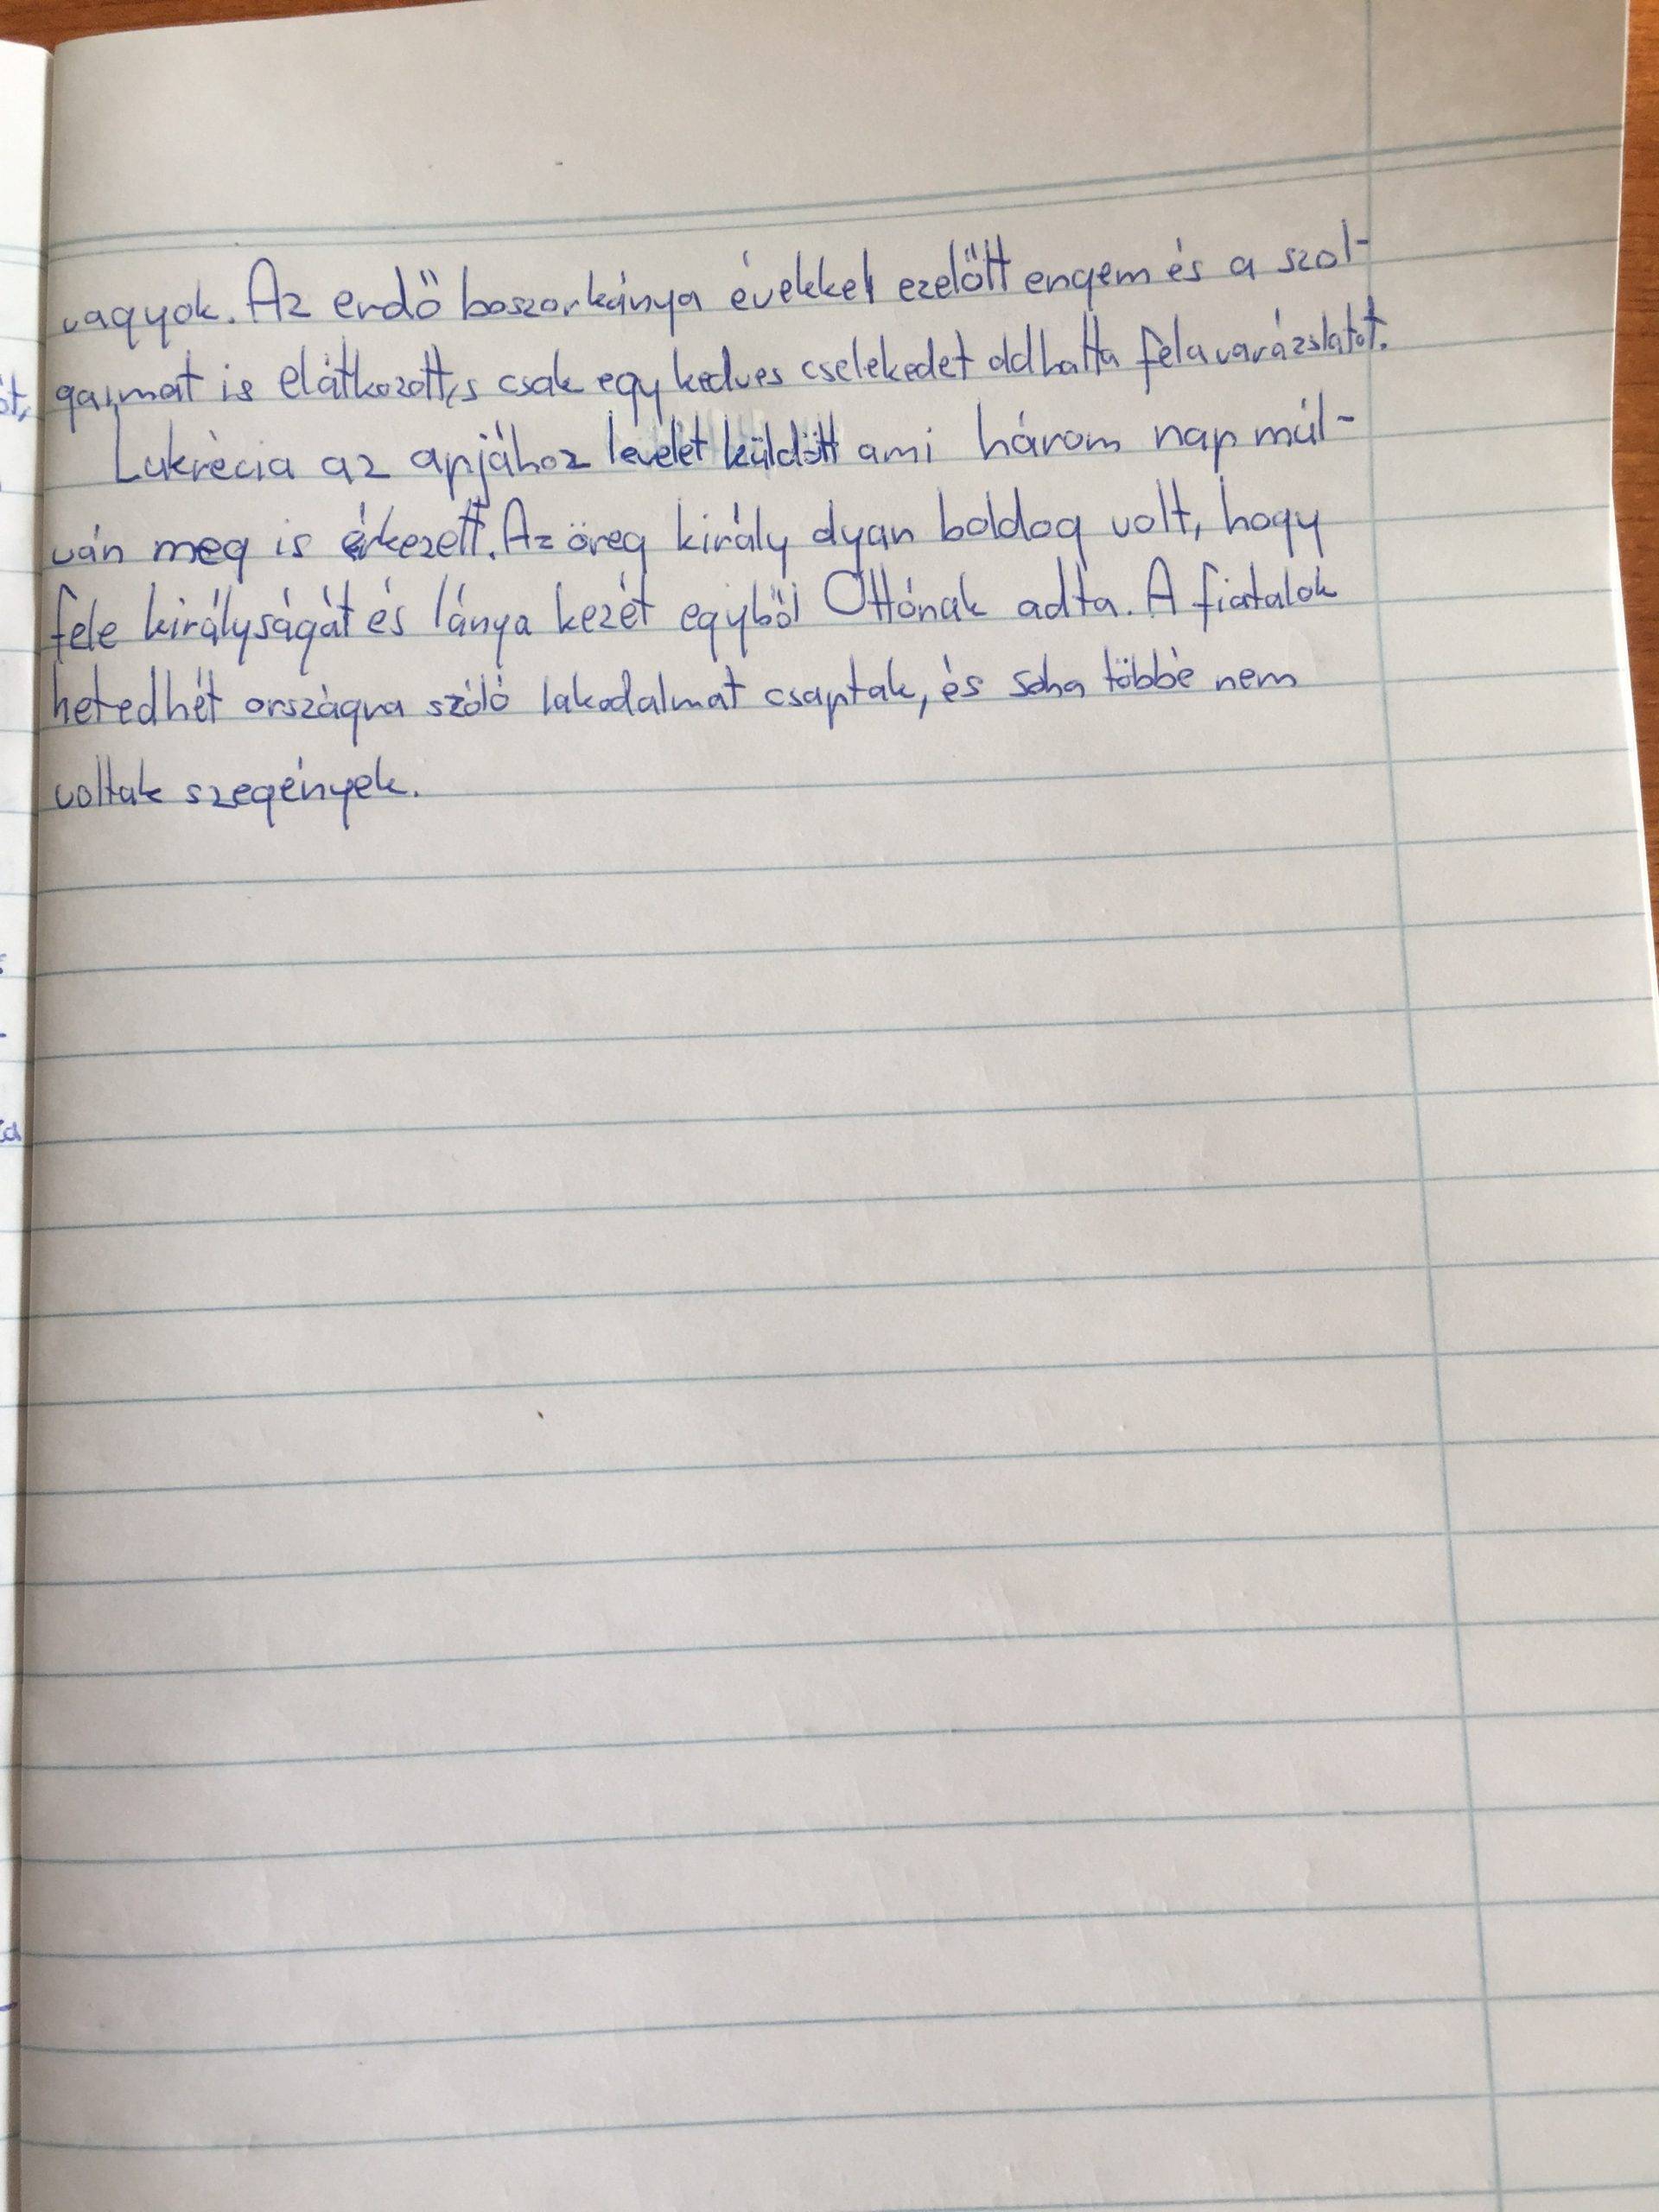 vagyok. Az erdő boszorkánya évekkel ezelőtt engem és a szol-
gáimat is elátkozott, s csak egy kedves cselekedet oldhatta fel a varázslatot.
Lukrécia az apjához levelét küldött ami három nap múl-
ván meg is érkezett. Az öreg király olyan boldog volt, hogy
fele királyságát és lánya kezét egyből Ottónak adta. A fiatalok
hetedhét országra szóló lakodalmat csaptak, és soha többé nem
voltak szegények.